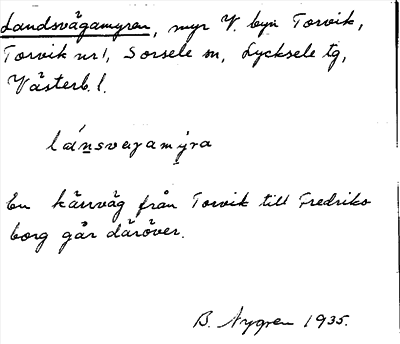 Landsvägamyran, myr V. byn Torvik,
Torvik nr 1, Sorsele sn, Lycksele tg,
Västerb. l.
lánsvegamýra
En kärrväg från Torvik till Fredriks
borg går däröver.
B. Nygren 1935.